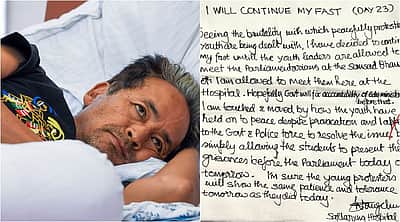 I WILL CONTINUE MY FAST (DAY 23)
Seeing the brutality with which peacefully protesti
youth are being dealt with, I have decided to contin
my fast until the youth leaders are allowed to
meet the Parliamentarians at the Sansad Bhava
or I am allowed to meet them here at the
Hospital. Hopefully Govt will fix accountability
before that.
I am touched & moved by how the youth have
held on to peace despite provocation and
to the Govt & Police force to resolve the issue
simply allowing the students to present the
grievances before the Parliament today or
tomorrow. I'm sure the young protesters
will show the same patience and tolerance
tomorrow as they did today.
Hospital